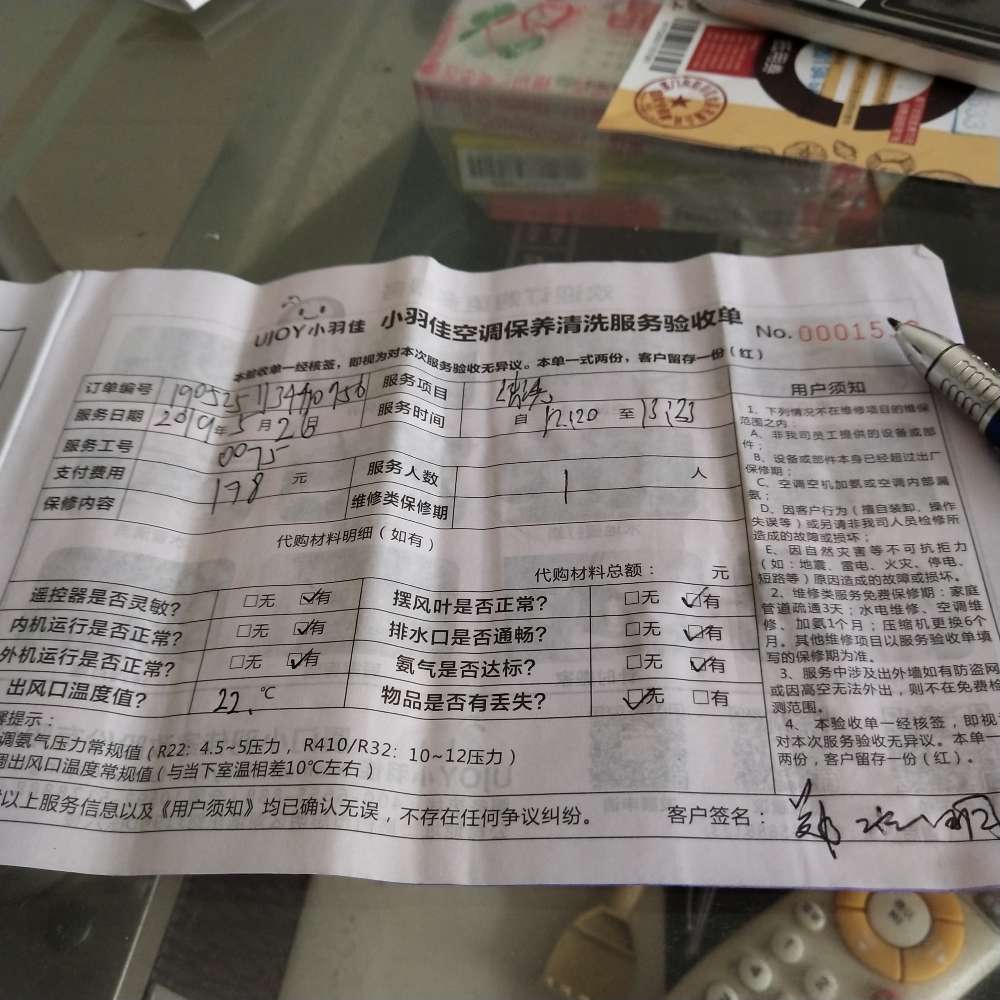 UJOY小羽佳 小羽佳空调保养清洗服务验收单 No.00015
本验收单一经核签，即视为对本次服务验收无异议。本单一式两份，客户留存一份（红）
订单编号 19052511344 0756 服务项目 清洗
服务日期 2019年5月26日 服务时间 自 12:20 至 13:23
服务工号 0075
支付费用 198 元 服务人数 1 人
保修内容 维修类保修期
代购材料明细（如有）
代购材料总额： 元
遥控器是否灵敏？ □无 ☑有 摆风叶是否正常？ □无 ☑有
内机运行是否正常？ □无 ☑有 排水口是否通畅？ □无 ☑有
外机运行是否正常？ □无 ☑有 氨气是否达标？ □无 ☑有
出风口温度值？ 22.℃ 物品是否有丢失？ ☑无 □有
提示：
调氨气压力常规值（R22：4.5~5压力，R410/R32：10~12压力）
调出风口温度常规值（与当下室温相差10℃左右）
以上服务信息以及《用户须知》均已确认无误，不存在任何争议纠纷。 客户签名：郑
用户须知
1、下列情况不在维修项目的维保
范围之内：
A、非我司员工提供的设备或部
件；
B、设备或部件本身已经超过出厂
保修期；
C、空调空机加氨或空调内部漏
氨；
D、因客户行为（擅自装卸、操作
失误等）或另请非我司人员检修所
造成的故障或损坏；
E、因自然灾害等不可抗拒力
（如：地震、雷电、火灾、停电、
短路等）原因造成的故障或损坏。
2、维修类服务免费保修期：家庭
管道疏通3天；水电维修、空调维
修、加氨1个月；压缩机更换6个
月。其他维修项目以服务验收单填
写的保修期为准。
3、服务中涉及出外墙如有防盗网
或因高空无法外出，则不在免费检
测范围。
4、本验收单一经核签，即视
对本次服务验收无异议。本单一
两份，客户留存一份（红）。